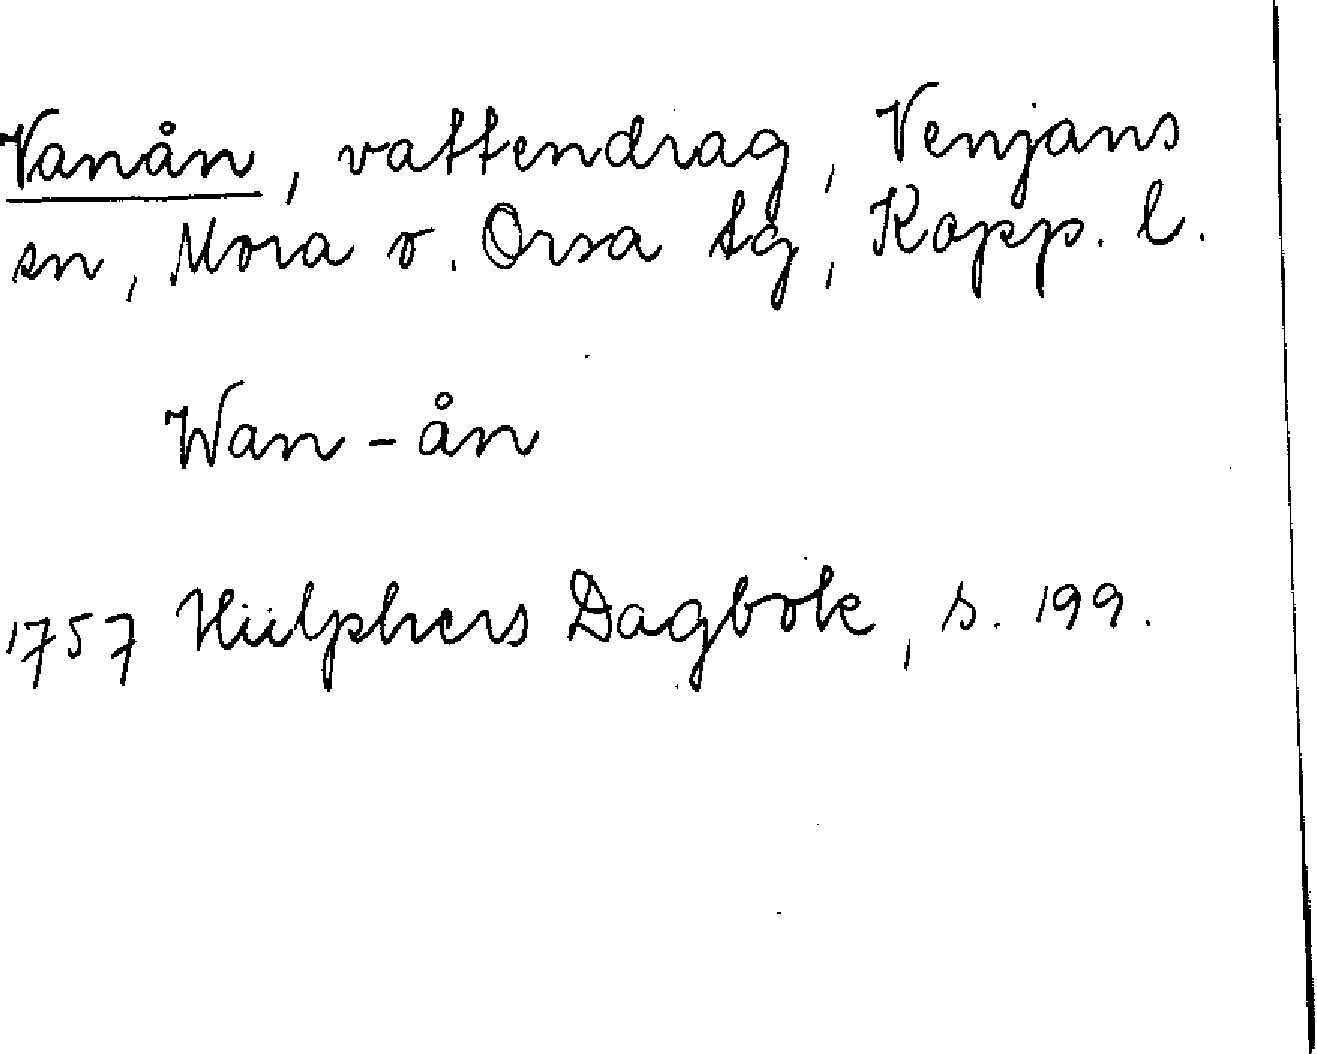 Vanån, vattendrag, Venjans
sn, Mora o. Orsa tg, Kopp. l.
Wan-ån
1757 Hülphers Dagbok, s. 199.